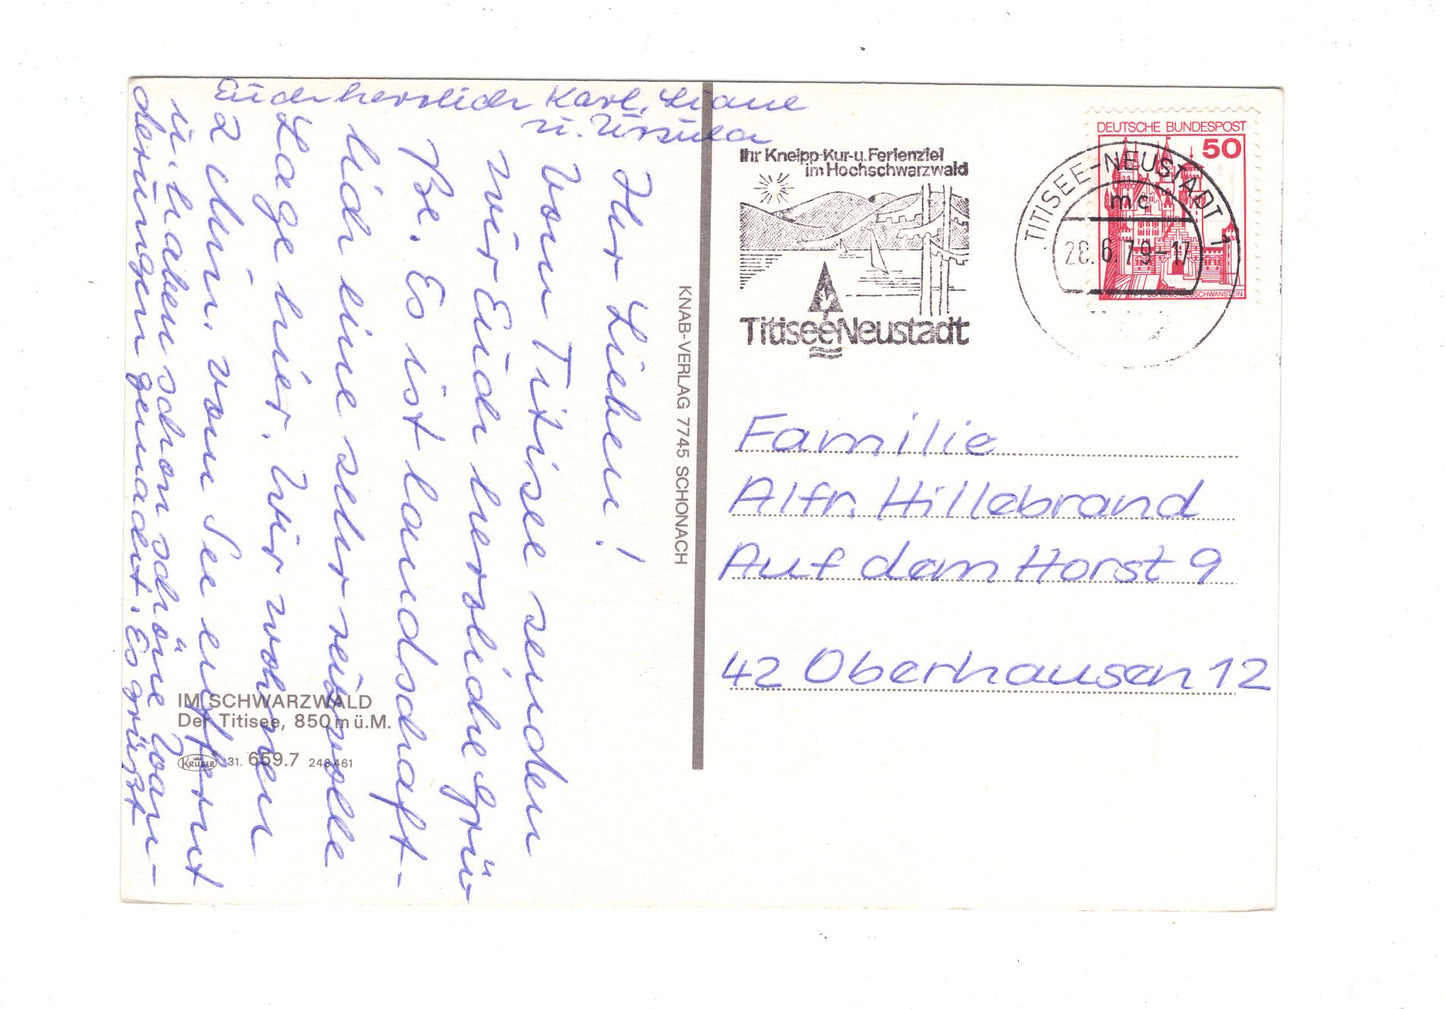 Ihr Lieben!
Vom Titisee senden
wir Euch herzliche Grü
ße. Es ist landschaft-
lich eine sehr reizvolle
Lage hier. Wir wohnen
2 Min. vom See entfernt
u. haben schon schöne Wan-
derungen gemacht. Es grüßt
Euch herzlich Karl,
u. Ursula
Ihr Kneipp-Kur-u. Ferienziel
im Hochschwarzwald
Titisee Neustadt
TITISEE-NEUSTADT 1
mc
28.6.79-17
DEUTSCHE BUNDESPOST
50
SCHLOSS NEUSCHWANSTEIN
Familie
Alfr. Hillebrand
Auf dem Horst 9
42 Oberhausen 12
KNAB-VERLAG 7745 SCHONACH
IM SCHWARZWALD
Der Titisee, 850 m ü. M.
KRÜGER 31. 659.7 248461